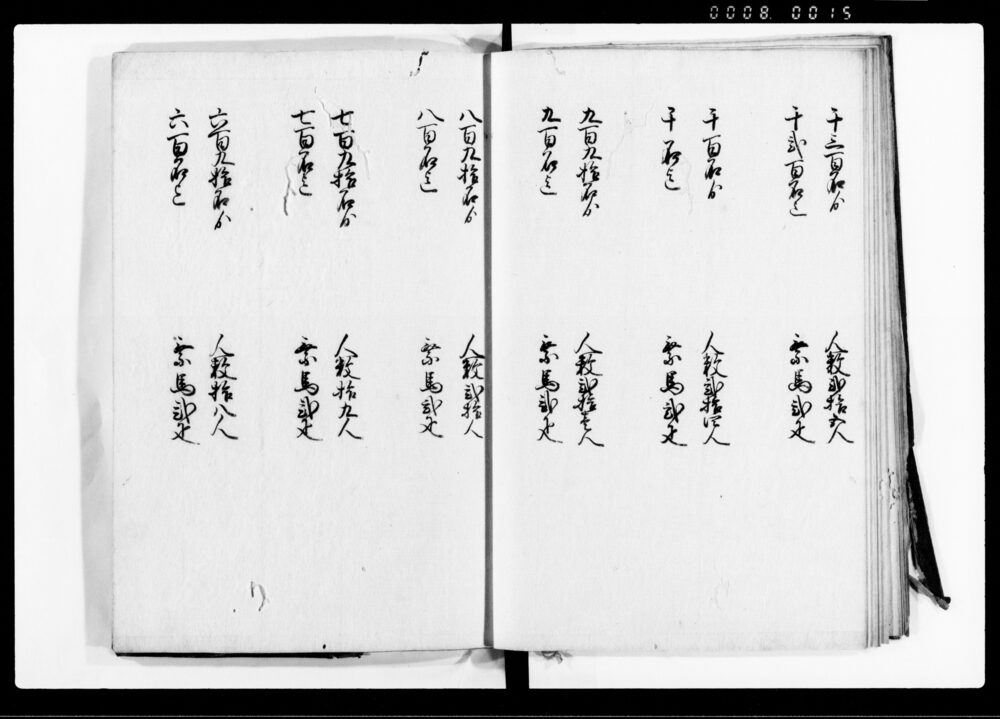 0008. 0015
千三百石ゟ
千弐百石迄
人数弐拾五人
乗馬弐疋
千百石ゟ
千石迄
人数弐拾四人
乗馬弐疋
九百九拾石ゟ
九百石迄
人数弐拾壱人
乗馬弐疋
八百九拾石ゟ
八百石迄
人数弐拾人
乗馬弐疋
七百九拾石ゟ
七百石迄
人数拾九人
乗馬弐疋
六百九拾石ゟ
六百石迄
人数拾八人
乗馬弐疋